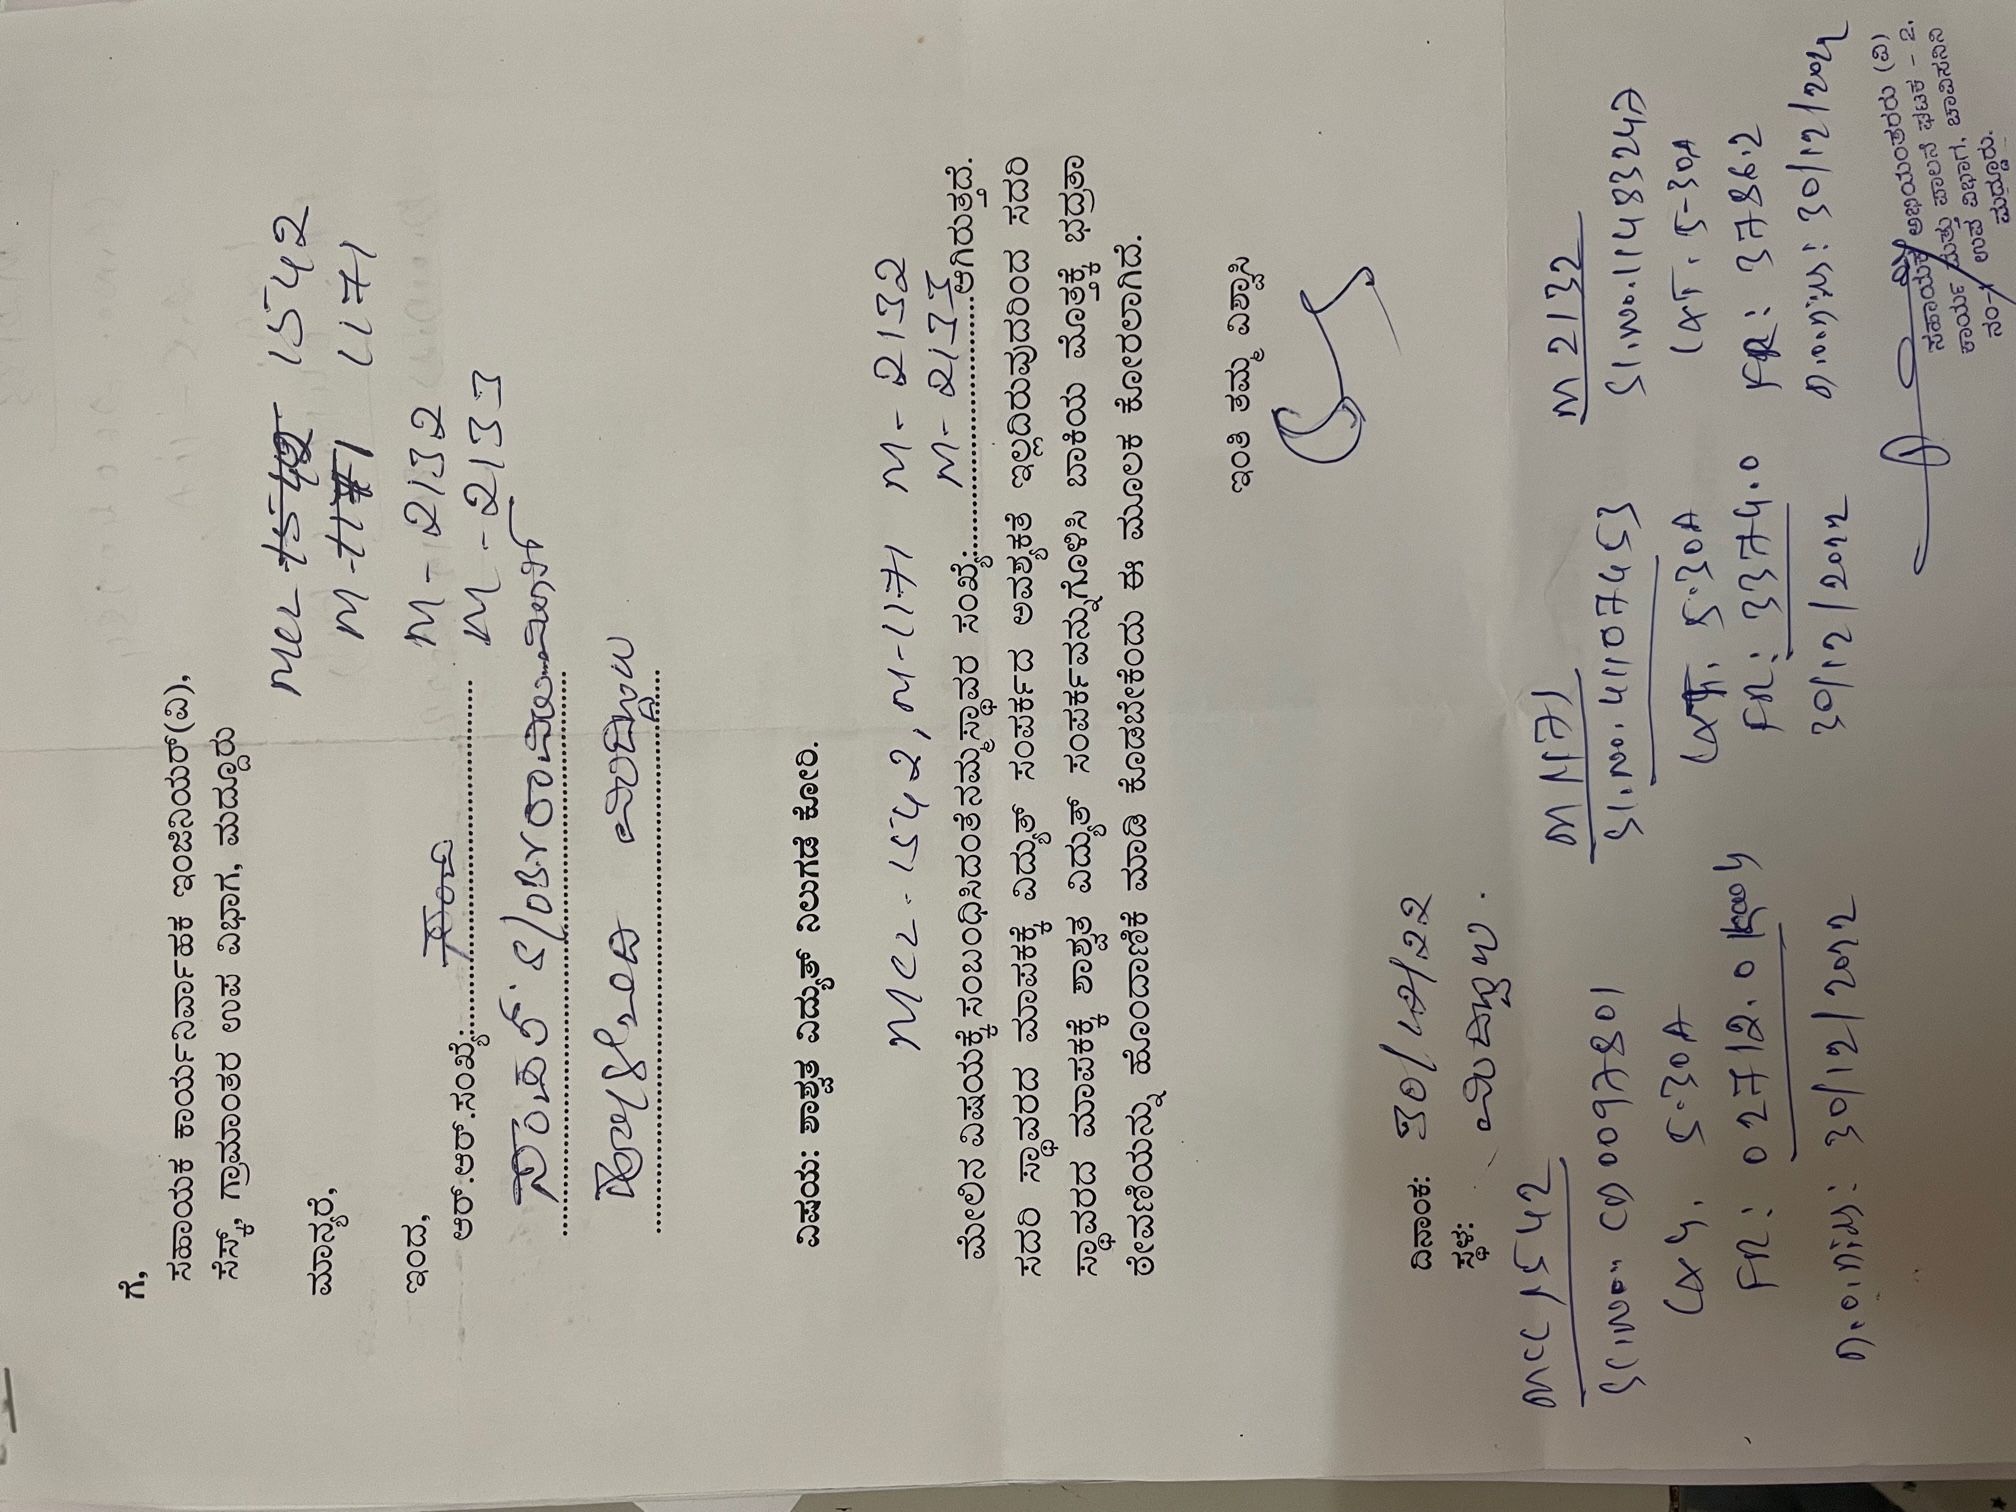 ಗೆ,
ಸಹಾಯಕ ಕಾರ್ಯನಿರ್ವಾಹಕ ಇಂಜಿನಿಯರ್(ವಿ),
ಸೆಸ್ಕ್, ಗ್ರಾಮಾಂತರ ಉಪ ವಿಭಾಗ, ಮದ್ದೂರು
MCL 1542
M- 1171
ಮಾನ್ಯರೆ,
ಇಂದ,
M- 2132
ಆರ್.ಆರ್.ಸಂಖ್ಯೆ: M- 2133
ವಿಷಯ: ಶಾಶ್ವತ ವಿದ್ಯುತ್ ನಿಲುಗಡೆ ಕೋರಿ.
MCL-1542, M-1171 M- 2132
ಮೇಲಿನ ವಿಷಯಕ್ಕೆ ಸಂಬಂಧಿಸಿದಂತೆ ನಮ್ಮ ಸ್ಥಾವರ ಸಂಖ್ಯೆ: M- 2133 ಆಗಿರುತ್ತದೆ.
ಸದರಿ ಸ್ಥಾವರದ ಮಾಪಕಕ್ಕೆ ವಿದ್ಯುತ್ ಸಂಪರ್ಕದ ಅವಶ್ಯಕತೆ ಇಲ್ಲದಿರುವುದರಿಂದ ಸದರಿ
ಸ್ಥಾವರದ ಮಾಪಕಕ್ಕೆ ಶಾಶ್ವತ ವಿದ್ಯುತ್ ಸಂಪರ್ಕವನ್ನುಗೊಳಿಸಿ ಬಾಕಿಯ ಮೊತ್ತಕ್ಕೆ ಭದ್ರತಾ
ಠೇವಣಿಯನ್ನು ಹೊಂದಾಣಿಕೆ ಮಾಡಿ ಕೊಡಬೇಕೆಂದು ಈ ಮೂಲಕ ಕೋರಲಾಗಿದೆ.
ಇಂತಿ ತಮ್ಮ ವಿಶ್ವಾಸಿ
ದಿನಾಂಕ: 30/12/22
ಸ್ಥಳ:
MCL 1542
Sl.No. 0097801
5-30A
FR: 02712.0
30/12/2022
M 1171
Sl.No. 41107453
5-30A
FR: 3374.0
30/12/2022
M 2132
Sl.No. 11483247
5-30A
FR: 3786.2
30/12/2022
ಸಹಾಯಕ ಅಭಿಯಂತರರು (ವಿ)
ಕಾರ್ಯ ಮತ್ತು ಪಾಲನೆ ಘಟಕ - 2.
ಉಪ ವಿಭಾಗ, ಚಾವಿಸನಿನಿ
ಮದ್ದೂರು.